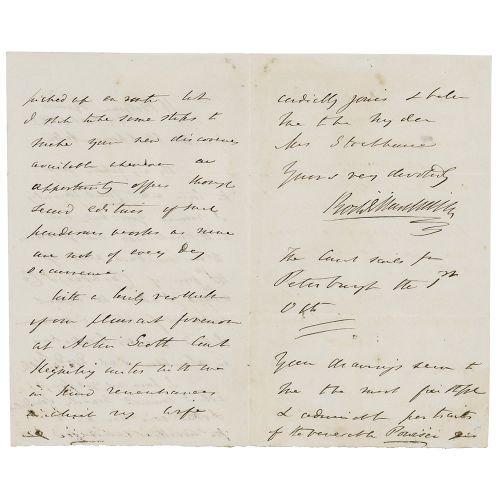 picked up en route but
I shall take some steps to
make your new discoveries
available whenever an
opportunity offers though
second editions of such
ponderous works as mine
are not of every day
occurrence.
With a lively recollection
of our pleasant forenoon
at Acton Scott
unites with me
in kind remembrances
in which my wife
cordially joins & believe
me to be my dear
Mrs Stackhouse
Yours very devotedly
Rod I Murchison
The Count sails for
Petersburgh the 1st
Oct
Your drawings seem to
me to be the most faithful
& admirable portraits
of the venerable